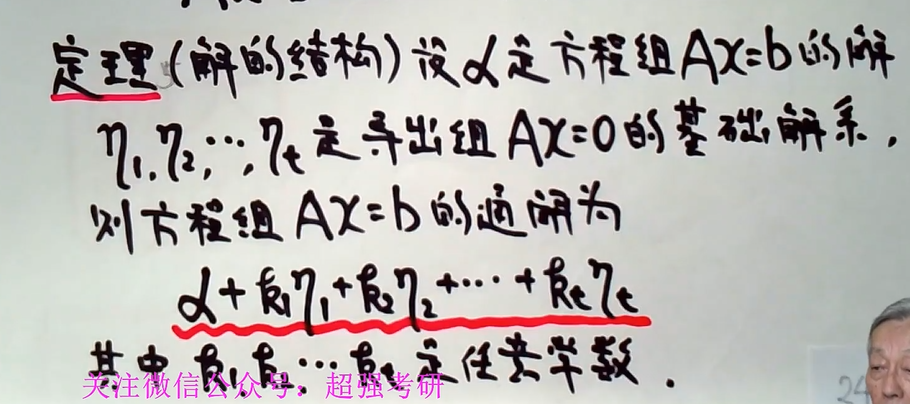 定理(解的结构)设α是方程组Ax=b的解
η₁,η₂,…,ηₜ是导出组Ax=0的基础解系,
则方程组Ax=b的通解为
α+k₁η₁+k₂η₂+…+kₜηₜ
其中k₁,k₂…kₜ是任意常数.
关注微信公众号:超强考研
24